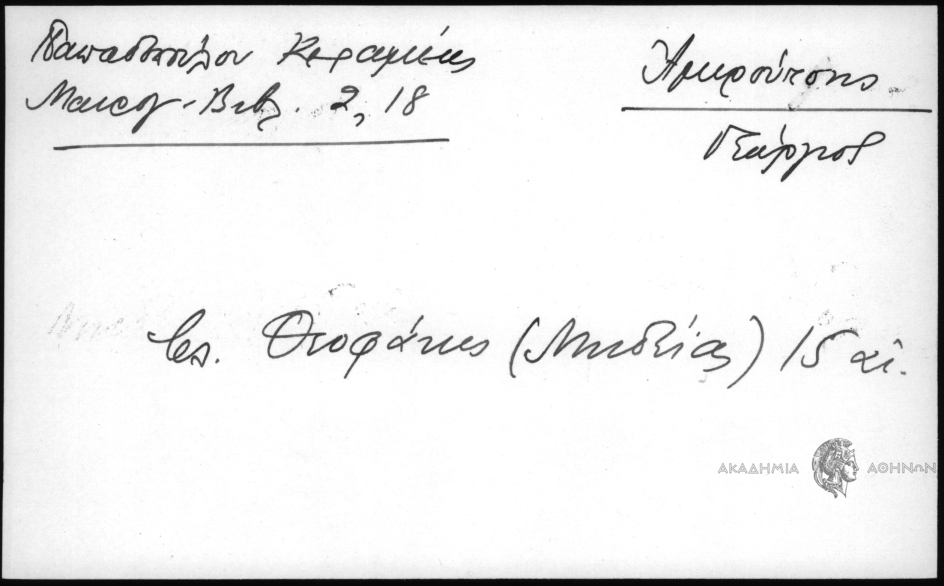 Παπαδοπούλου Κεραμέως
Μαυρογ. Βιβλ. 2, 18
Ἀμιρούτσης
Γεώργιος
Θεοφάνης (Μηδείας) 15 αἰ.
ΑΚΑΔΗΜΙΑ ΑΘΗΝΩΝ